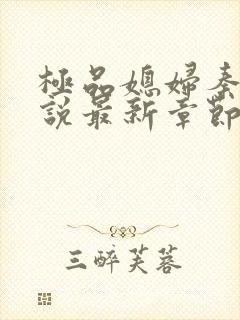 極品媳婦秦
說最新章節
三醉芙蓉